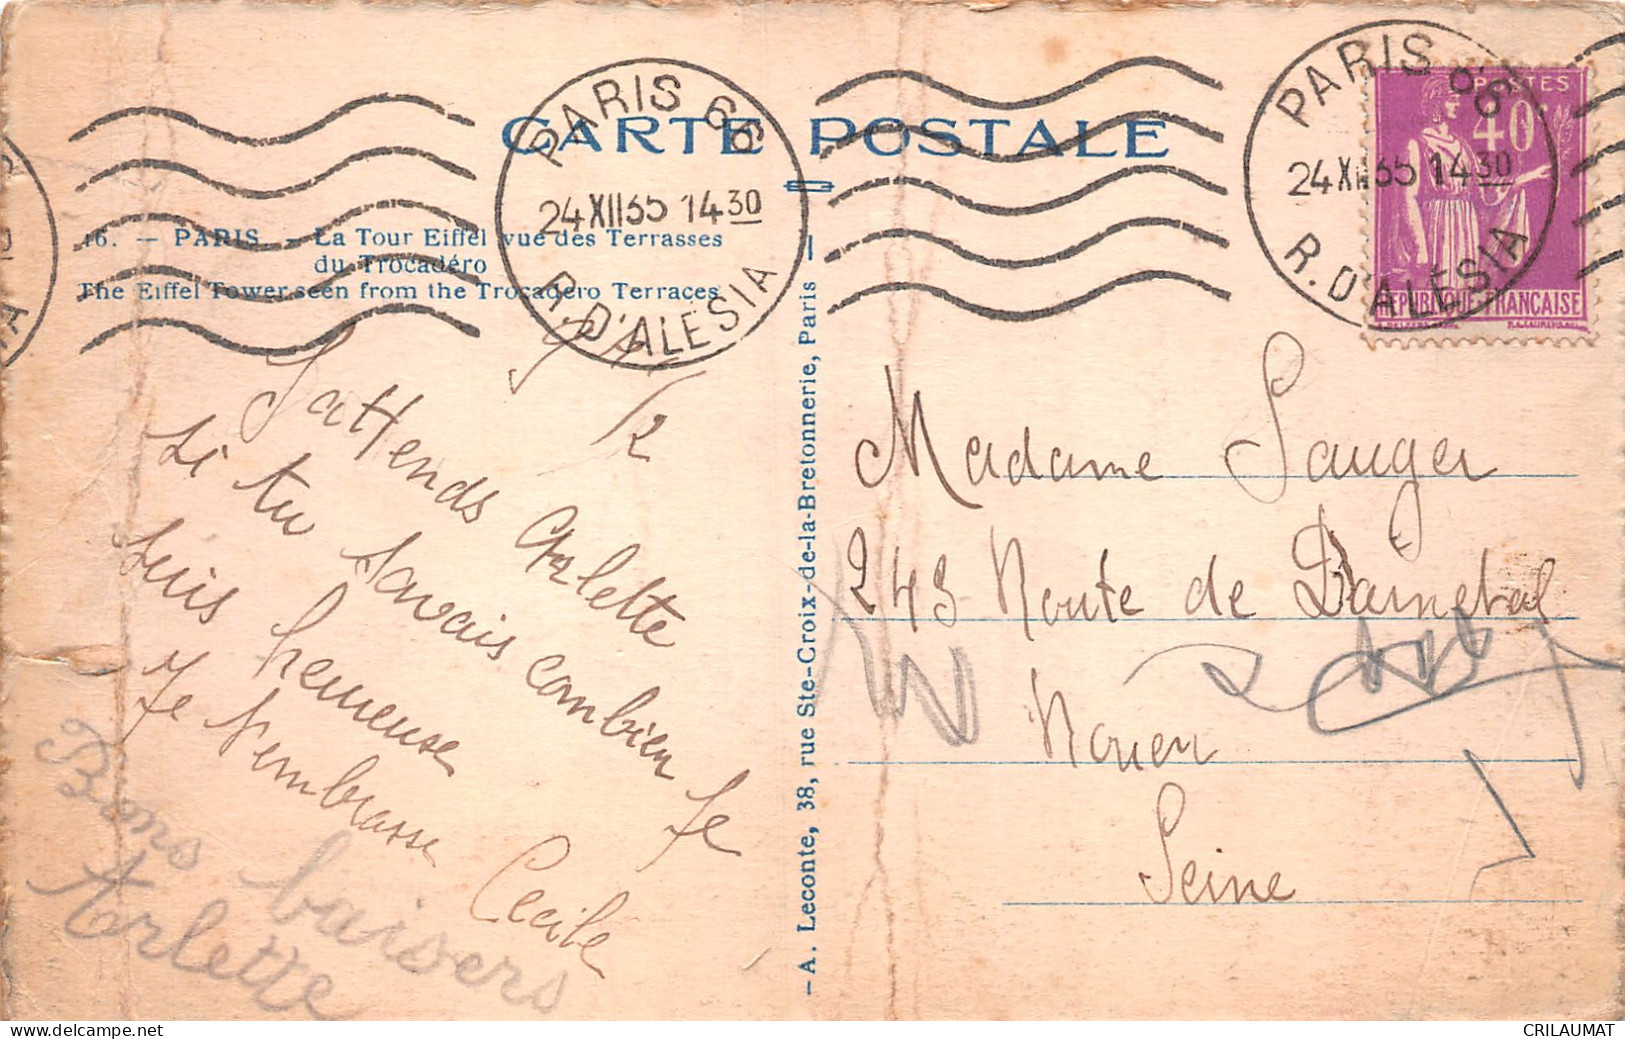 CARTE POSTALE
PARIS 66
24 XII 35 14 30
R. D'ALESIA
PARIS 66
24 XII 35 14 30
R. D'ALESIA
POSTES
40c
REPUBLIQUE FRANÇAISE
16. — PARIS. — La Tour Eiffel vue des Terrasses
du Trocadéro
The Eiffel Tower seen from the Trocadero Terraces
J'attends Arlette
si tu savais combien je
suis heureuse
Je t'embrasse
Cecile
Bons baisers
Arlette
— A. Leconte, 38, rue Ste-Croix-de-la-Bretonnerie, Paris —
Madame Sauger
243 Route de Darnetal
Rouen
Seine
www.delcampe.net
CRILAUMAT